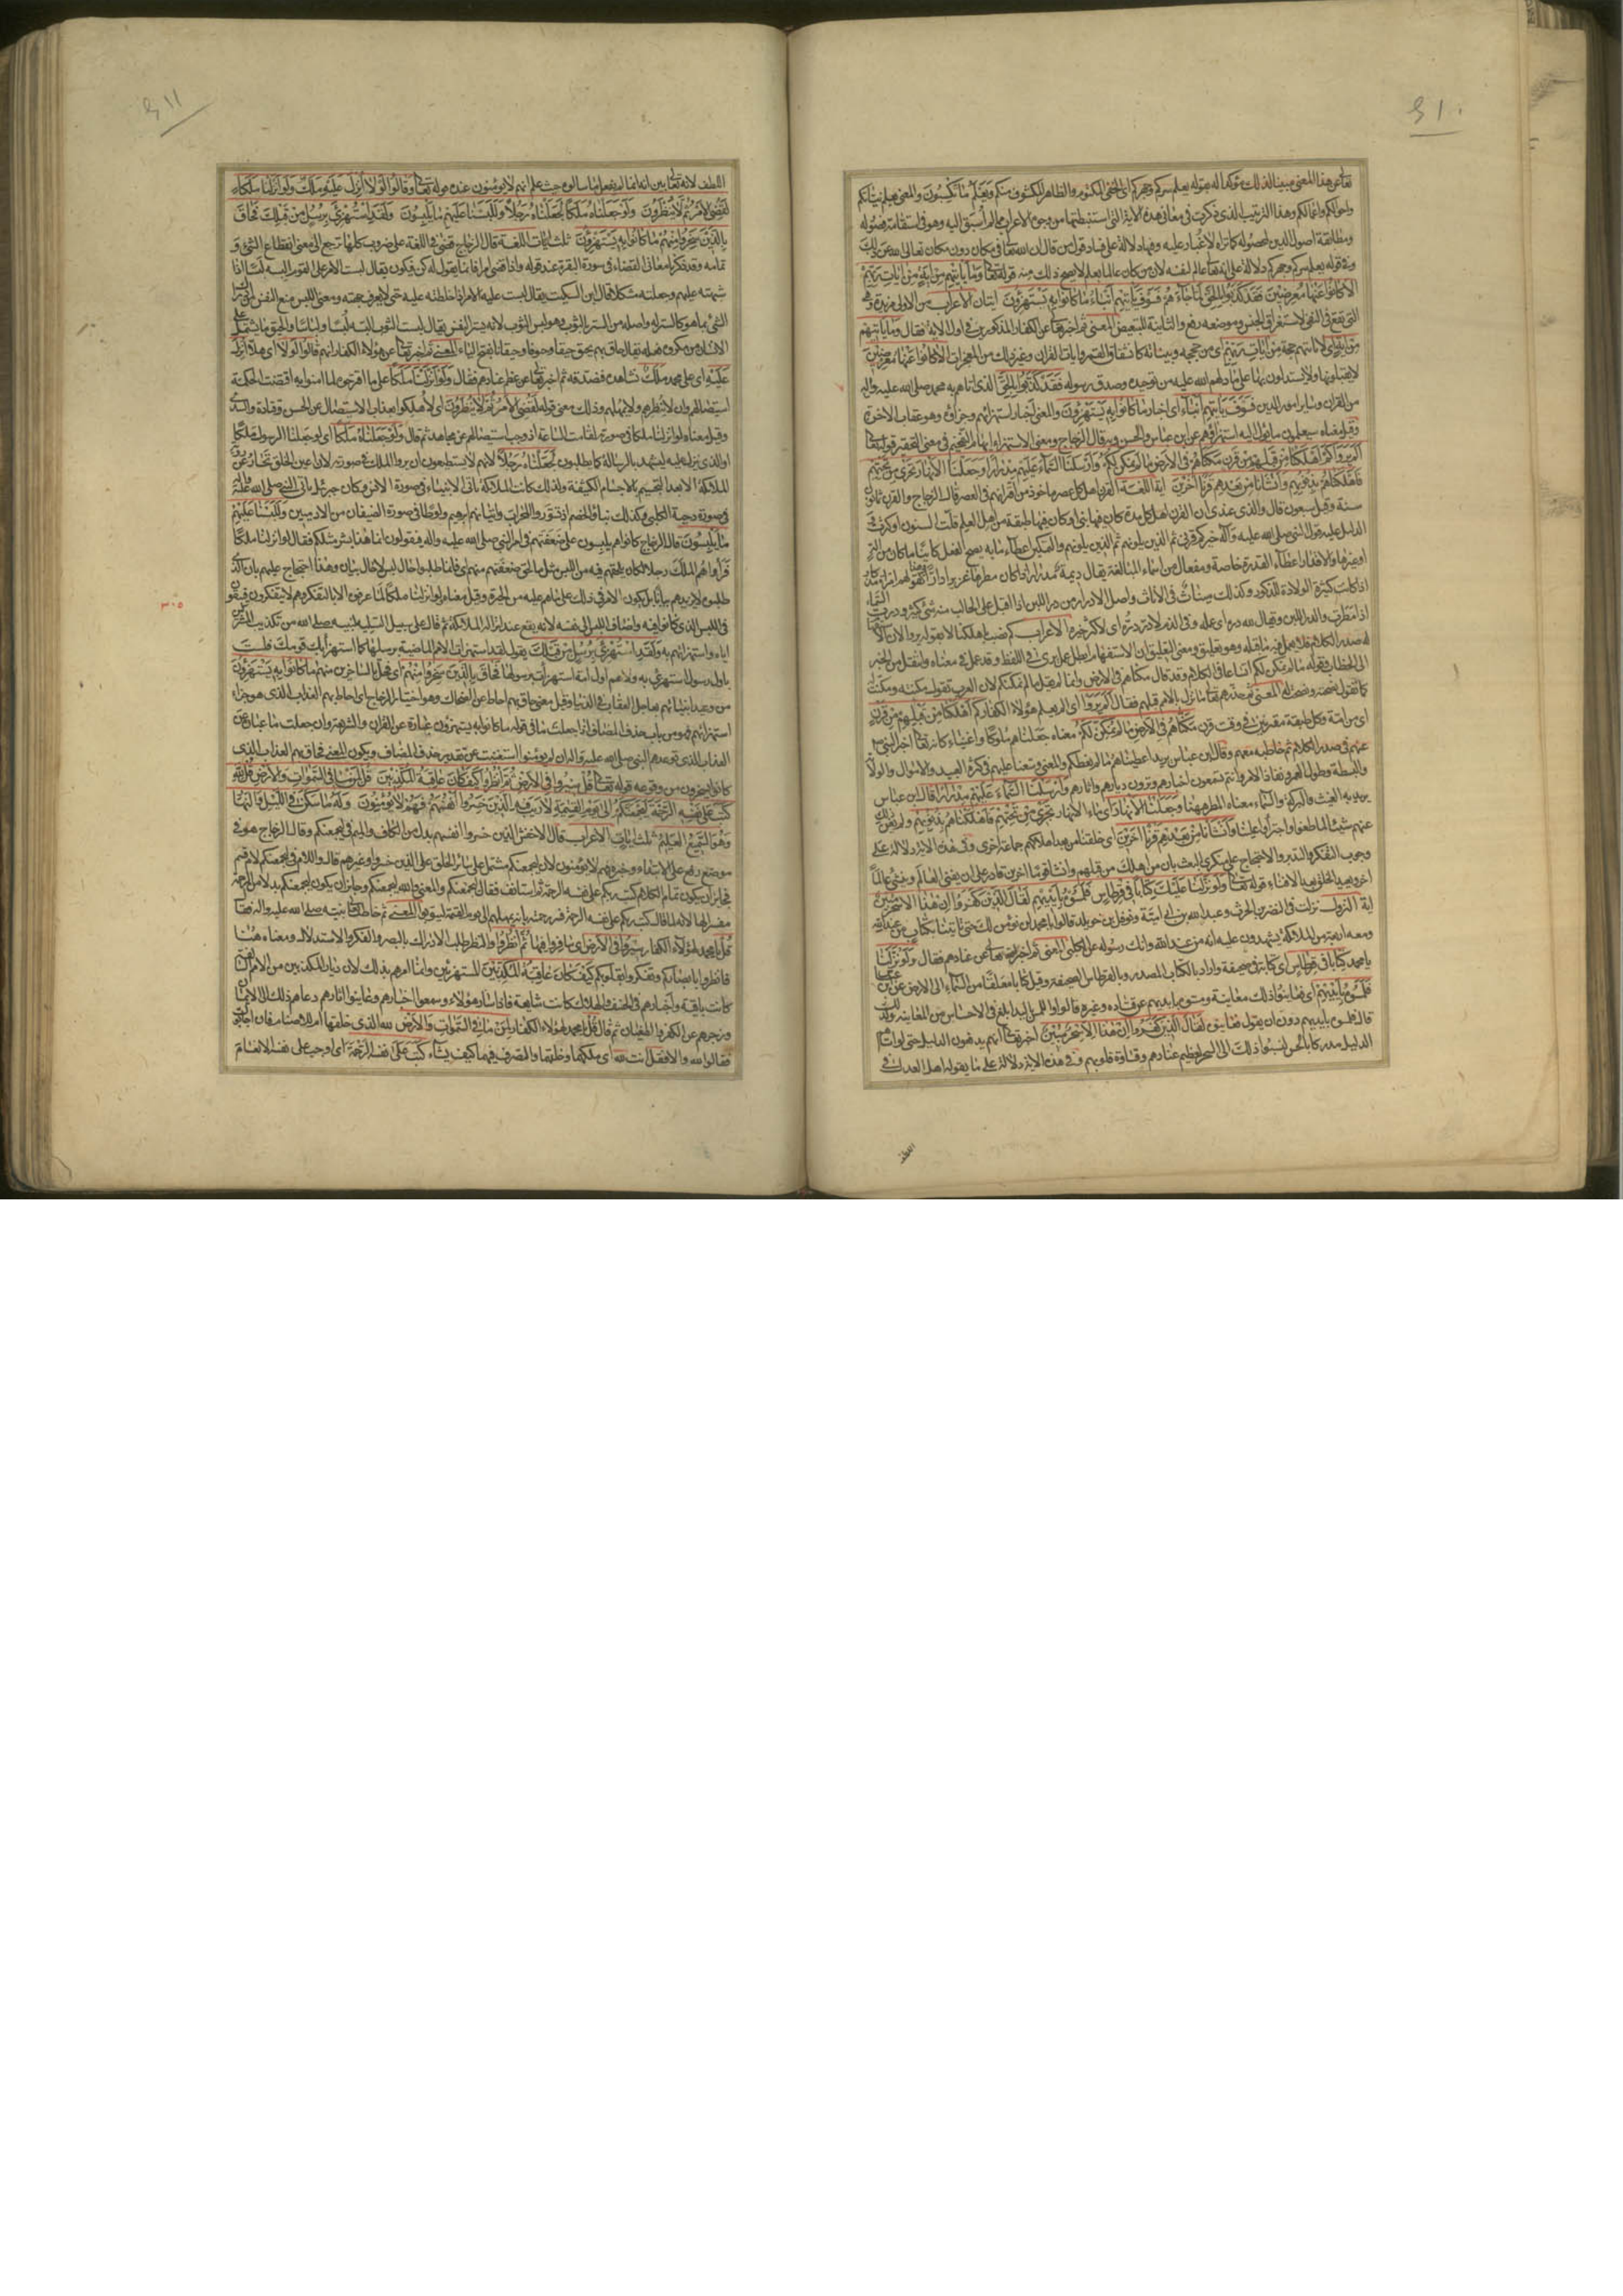 تعالى عن هذا المعنى مبينا لذلك مؤكدا له بقوله يعلم سركم وجهركم اى الخفى المكتوم والظاهر المكشوف منكم ويعلم ما تكسبون والمعنى يعلم نياتكم
واحوالكم واعمالكم وهذا الترتيب الذى ذكرت فى معانى هذه الاية التى استنبطتها من وجوه الاعراب مما لم اسبق اليه وهو فى استقامة فصوله
ومطابقة اصول الدين لمحصوله كما تراه لا غبار عليه وفيها دلالة على فساد قول من قال ان الله تعالى فى مكان دون مكان تعالى الله عن ذلك
وفى قوله يعلم سركم وجهركم دلالة على انه تعالى عالم لنفسه لان من كان عالما بعلم لا يصح ذلك منه قوله تعالى وما تاتيهم من اية من ايات ربهم
الا كانوا عنها معرضين فقد كذبوا بالحق لما جاءهم فسوف ياتيهم انباء ما كانوا به يستهزؤن ايتان الاعراب من الاولى مزيدة وهى
التى تقع فى النفى لاستغراق الجنس وموضعه رفع والثانية للتبعيض المعنى ثم اخبر تعالى عن الكفار المذكورين فى اول الاية فقال وما تاتيهم
من اية اى لا تاتيهم حجة من ايات ربهم اى من حججه وبيناته كانشقاق القمر وايات القران وغير ذلك من المعجزات الا كانوا عنها معرضين
لا يقبلونها ولا يستدلون بها على ما دلهم الله عليه من توحيده وصدق رسوله فقد كذبوا بالحق الذى اتاهم به محمد صلى الله عليه واله
من القران وساير امور الدين فسوف ياتيهم انباء اى اخبار ما كانوا به يستهزؤن والمعنى اخبار استهزائهم وجزاؤه وهو عقاب الاخرة
وقيل معناه سيعلمون ما يؤل اليه استهزاؤهم عن ابن عباس والحسن وبه قال الزجاج ومعنى الاستهزاء ايهام التفخيم فى معنى التحقير قوله تعالى
الم يروا كم اهلكنا من قبلهم من قرن مكناهم فى الارض ما لم نمكن لكم وارسلنا السماء عليهم مدرارا وجعلنا الانهار تجرى من تحتهم
فاهلكناهم بذنوبهم وانشانا من بعدهم قرنا اخرين اية اللغة القرن اهل كل عصر ماخوذ من اقرانهم فى العصر قال الزجاج والقرن ثمانون
سنة وقيل سبعون قال والذى عندى ان القرن اهل كل مدة كان فيها نبى او كان فيها طبقة من اهل العلم قلت السنون او كثرت
الدليل عليه قول النبى صلى الله عليه واله خيركم قرنى ثم الذين يلونهم ثم الذين يلونهم والتمكين اعطاء ما به يصح الفعل كائنا ما كان من الة
او غيرها والاقدار اعطاء القدرة خاصة ومفعال من اسماء المبالغة يقال ديمة مدرار اذا كان مطرها غزيرا دارا كقولهم امراة مذكار
اذا كانت كثيرة الولادة للذكور وكذلك ميناث فى الاناث واصل الادرار من در اللبن اذا اقبل على الحالب منه شئ كثير ودرت السماء
اذا امطرت والدر اللبن ويقال لله دره اى عمله وفى الذم لا در دره اى لا كثر خيره الاعراب كم نصب باهلكنا لا بقوله يروا لان الاستفهام
له صدر الكلام فلا يعمل فيه ما قبله وهو تعليق ومعنى التعليق ان الاستفهام ابطل عمل يرى فى اللفظ وقد عمل فى معناه وانتقل من الخبر
الى الخطاب فى قوله ما لم نمكن لكم اتساعا فى الكلام وقد قال مكناهم فى الارض وانما لم يقل ما لم نمكنكم لان العرب تقول مكنته ومكنت له
كما تقول نصحته ونصحت له المعنى ثم حذرهم تعالى ما نزل بالامم قبلهم فقال الم يروا اى الم يعلم هؤلاء الكفار كم اهلكنا من قبلهم من قرن
اى من امة وكل طبقة مقترنين فى وقت قرن مكناهم فى الارض ما لم نمكن لكم معناه جعلناهم ملوكا واغنياء كانه تعالى اخبر النبى ص
عنهم فى صدر الكلام ثم خاطبه معهم وقال ابن عباس يريد اعطيناهم ما لم نعطكم والمعنى وسعنا عليهم فى كثرة العبيد والاموال والولاية
والبسطة وطول العمر ونفاذ الامر وانتم تسمعون اخبارهم وترون ديارهم واثارهم وارسلنا السماء عليهم مدرارا قال ابن عباس
يريد به الغيث والبركة والسماء معناه المطر ههنا وجعلنا الانهار اى ماء الانهار تجرى من تحتهم فاهلكناهم بذنوبهم ولم يغن ذلك
عنهم شيئا لما طغوا واجترأوا علينا وانشأنا من بعدهم قرنا اخرين اى خلقنا من بعد اهلاكهم جماعة اخرى وفى هذه الاية دلالة على
وجوب التفكر والتدبر والاحتجاج على منكرى البعث بان من اهلك من قبلهم وانشأ قوما اخرين قادر على ان يفنى العالم وينشئ عالما
اخر ويعيد الخلق بعد الافناء قوله تعالى ولو نزلنا عليك كتابا فى قرطاس فلمسوه بايديهم لقال الذين كفروا ان هذا الا سحر مبين
اية النزول نزلت فى النضر بن الحرث وعبد الله بن ابى امية ونوفل بن خويلد قالوا يا محمد لن نؤمن لك حتى تاتينا بكتاب من عند الله
ومعه اربعة من الملائكة يشهدون عليه انه من عند الله وانك رسوله عن الكلبى المعنى ثم اخبر تعالى عن عنادهم فقال ولو نزلنا
يا محمد كتابا فى قرطاس اى كتابة فى صحيفة واراد بالكتاب المصدر وبالقرطاس الصحيفة وقيل كتابا معلقا من السماء الى الارض عن ابن عباس
فلمسوه بايديهم اى فعاينوا ذلك معاينة ومسوه بايديهم عن قتادة وغيره قالوا واللمس باليد ابلغ فى الاحساس من المعاينة ولذلك
قال فلمسوه بايديهم دون ان يقول فعاينوه لقال الذين كفروا ان هذا الا سحر مبين اخبر تعالى انهم يدفعون الدليل حتى لو اتاهم
الدليل مدركا بالحس لنسبوا ذلك الى السحر لعظيم عنادهم وقساوة قلوبهم وفى هذه الاية دلالة على ما يقوله اهل العدل فى
اللطف
اللطف لانه تعالى بين انه انما لم يفعل ما سالوه حيث علم انهم لا يؤمنون عنده قوله تعالى وقالوا لولا انزل عليه ملك ولو انزلنا ملكا
لقضى الامر ثم لا ينظرون ولو جعلناه ملكا لجعلناه رجلا وللبسنا عليهم ما يلبسون ولقد استهزئ برسل من قبلك فحاق
بالذين سخروا منهم ما كانوا به يستهزؤن ثلث ايات اللغة قال الزجاج قضى فى اللغة على ضروب كلها ترجع الى معنى انقطاع الشئ و
تمامه وقد ذكرنا معانى القضاء فى سورة البقرة عند قوله واذا قضى امرا فانما يقول له كن فيكون يقال لبست الامر على القوم البسه لبسا اذا
شبهته عليهم وجعلته مشكلا قال ابن السكيت يقال لبست عليه الامر اذا خلطته عليه حتى لا يعرف جهته ومعنى اللبس منع النفس من ادراك
الشئ بما هو كالستر له واصله من الستر بالثوب وهو لبس الثوب لانه يستر النفس يقال لبست الثوب البسه لبسا ولباسا والحيق ما يشتمل على
الانسان من مكروه فعله يقال حاق بهم يحيق حيقا وحيوقا وحيقانا بفتح الياء المعنى ثم اخبر تعالى عن هؤلاء الكفار انهم قالوا لولا اى هلا انزل
عليه اى على محمد ملك نشاهده فنصدقه ثم اخبر تعالى عن عظم عنادهم فقال ولو انزلنا ملكا على ما اقترحوه لما امنوا به اقتضت الحكمة
استيصالهم وان لا ينظرهم ولا يمهلهم وذلك معنى قوله لقضى الامر ثم لا ينظرون اى لاهلكوا بعذاب الاستيصال عن الحسن وقتادة والسدى
وقيل معناه لو انزلنا ملكا فى صورته لقامت الساعة او وجب استيصالهم عن مجاهد ثم قال ولو جعلناه ملكا اى لو جعلنا الرسول ملكا
او الذى ينزل عليه ليشهد بالرسالة كما يطلبون لجعلناه رجلا لانهم لا يستطيعون ان يروا الملك فى صورته لان اعين الخلق تحار عن رؤية
الملائكة الا بعد التجسم بالاجسام الكثيفة ولذلك كانت الملائكة تاتى الانبياء فى صورة الانس وكان جبرئيل ياتى النبى صلى الله عليه واله
فى صورة دحية الكلبى وكذلك نبأ الخصم اذ تسوروا المحراب واتيانهم ابرهيم ولوطا فى صورة الضيفان من الادميين وللبسنا عليهم
ما يلبسون قال الزجاج كانوا هم يلبسون على ضعفتهم فى امر النبى صلى الله عليه واله فيقولون انما هذا بشر مثلكم فقال لو انزلنا ملكا
فراوا هم الملك رجلا لكان يلحقهم فيه من اللبس مثل ما لحق ضعفتهم منهم اى فانما طلبوا حال لبس لا حال بيان وهذا احتجاج عليهم بان الذى
طلبوه لا يزيدهم بيانا بل يكون الامر فى ذلك على ما هم عليه من الحيرة وقيل معناه لو انزلنا ملكا لما عرفوه الا بالتفكر وهم لا يتفكرون فيبقون
فى اللبس الذى كانوا فيه واضاف اللبس الى نفسه لانه يقع عند انزاله الملائكة ثم قال على سبيل التسلية لنبيه صلى الله من تكذيب المشركين
اياه واستهزائهم به ولقد استهزئ برسل من قبلك يقول لقد استهزات الامم الماضية برسلها كما استهزأ بك قومك فلست
باول رسول استهزئ به ولا هم اول امة استهزأت برسولها فحاق بالذين سخروا منهم اى فحل بالساخرين منهم ما كانوا به يستهزؤن
من وعيد انبيائهم بعاجل العقاب فى الدنيا وقيل معنى حاق بهم احاط عن الضحاك وهو اختيار الزجاج اى احاط بهم العذاب الذى هو جزاء
استهزائهم فهو من باب حذف المضاف اذا جعلت ما فى قوله ما كانوا به يستهزؤن عبارة عن القران والشريعة وان جعلت ما عبارة عن
العذاب الذى توعدهم النبى صلى الله عليه واله ان لم يؤمنوا استغنيت عن تقدير حذف المضاف ويكون المعنى فحاق بهم العذاب الذى
كانوا يسخرون من وقوعه قوله تعالى قل سيروا فى الارض ثم انظروا كيف كان عاقبة المكذبين قل لمن ما فى السموات والارض قل لله
كتب على نفسه الرحمة ليجمعنكم الى يوم القيمة لا ريب فيه الذين خسروا انفسهم فهم لا يؤمنون وله ما سكن فى الليل والنهار
وهو السميع العليم ثلث ايات الاعراب قال الاخفش الذين خسروا انفسهم بدل من الكاف والميم فى ليجمعنكم وقال الزجاج هو فى
موضع رفع على الابتداء وخبره فهم لا يؤمنون لان ليجمعنكم مشتمل على سائر الخلق على الذين خسروا وغيرهم قال واللام فى ليجمعنكم لام قسم
فجائز ان يكون تمام الكلام كتب ربكم على نفسه الرحمة ثم استانف فقال ليجمعنكم والمعنى والله ليجمعنكم وجائز ان يكون ليجمعنكم بدلا من الرحمة
مفسرا لها لانه لما قال كتب ربكم على نفسه الرحمة فسر رحمته بانه يمهلهم الى يوم القيمة ليتوبوا المعنى ثم خاطب تعالى نبيه صلى الله عليه واله فقال
قل يا محمد لهؤلاء الكفار سيروا فى الارض اى سافروا فيها ثم انظروا والنظر طلب الادراك بالبصر والفكر والاستدلال ومعناه هنا
فانظروا بابصاركم وتفكروا بقلوبكم كيف كان عاقبة المكذبين المستهزئين وانما امرهم بذلك لان ديار المكذبين من الامم السالفة
كانت باقية واخبارهم فى الخسف والهلاك كانت شايعة فاذا سار هؤلاء وسمعوا اخبارهم وعاينوا اثارهم دعاهم ذلك الى الايمان
وزجرهم عن الكفر والطغيان ثم قال قل يا محمد لهؤلاء الكفار لمن ما فى السموات والارض الله الذى خلقها ام الاصنام فان اجابوك
فقالوا الله والا فقل انت لله اى ملكهما وخلقهما والتصرف فيهما كيف يشاء كتب على نفسه الرحمة اى اوجب على نفسه الانعام
٣٠٥